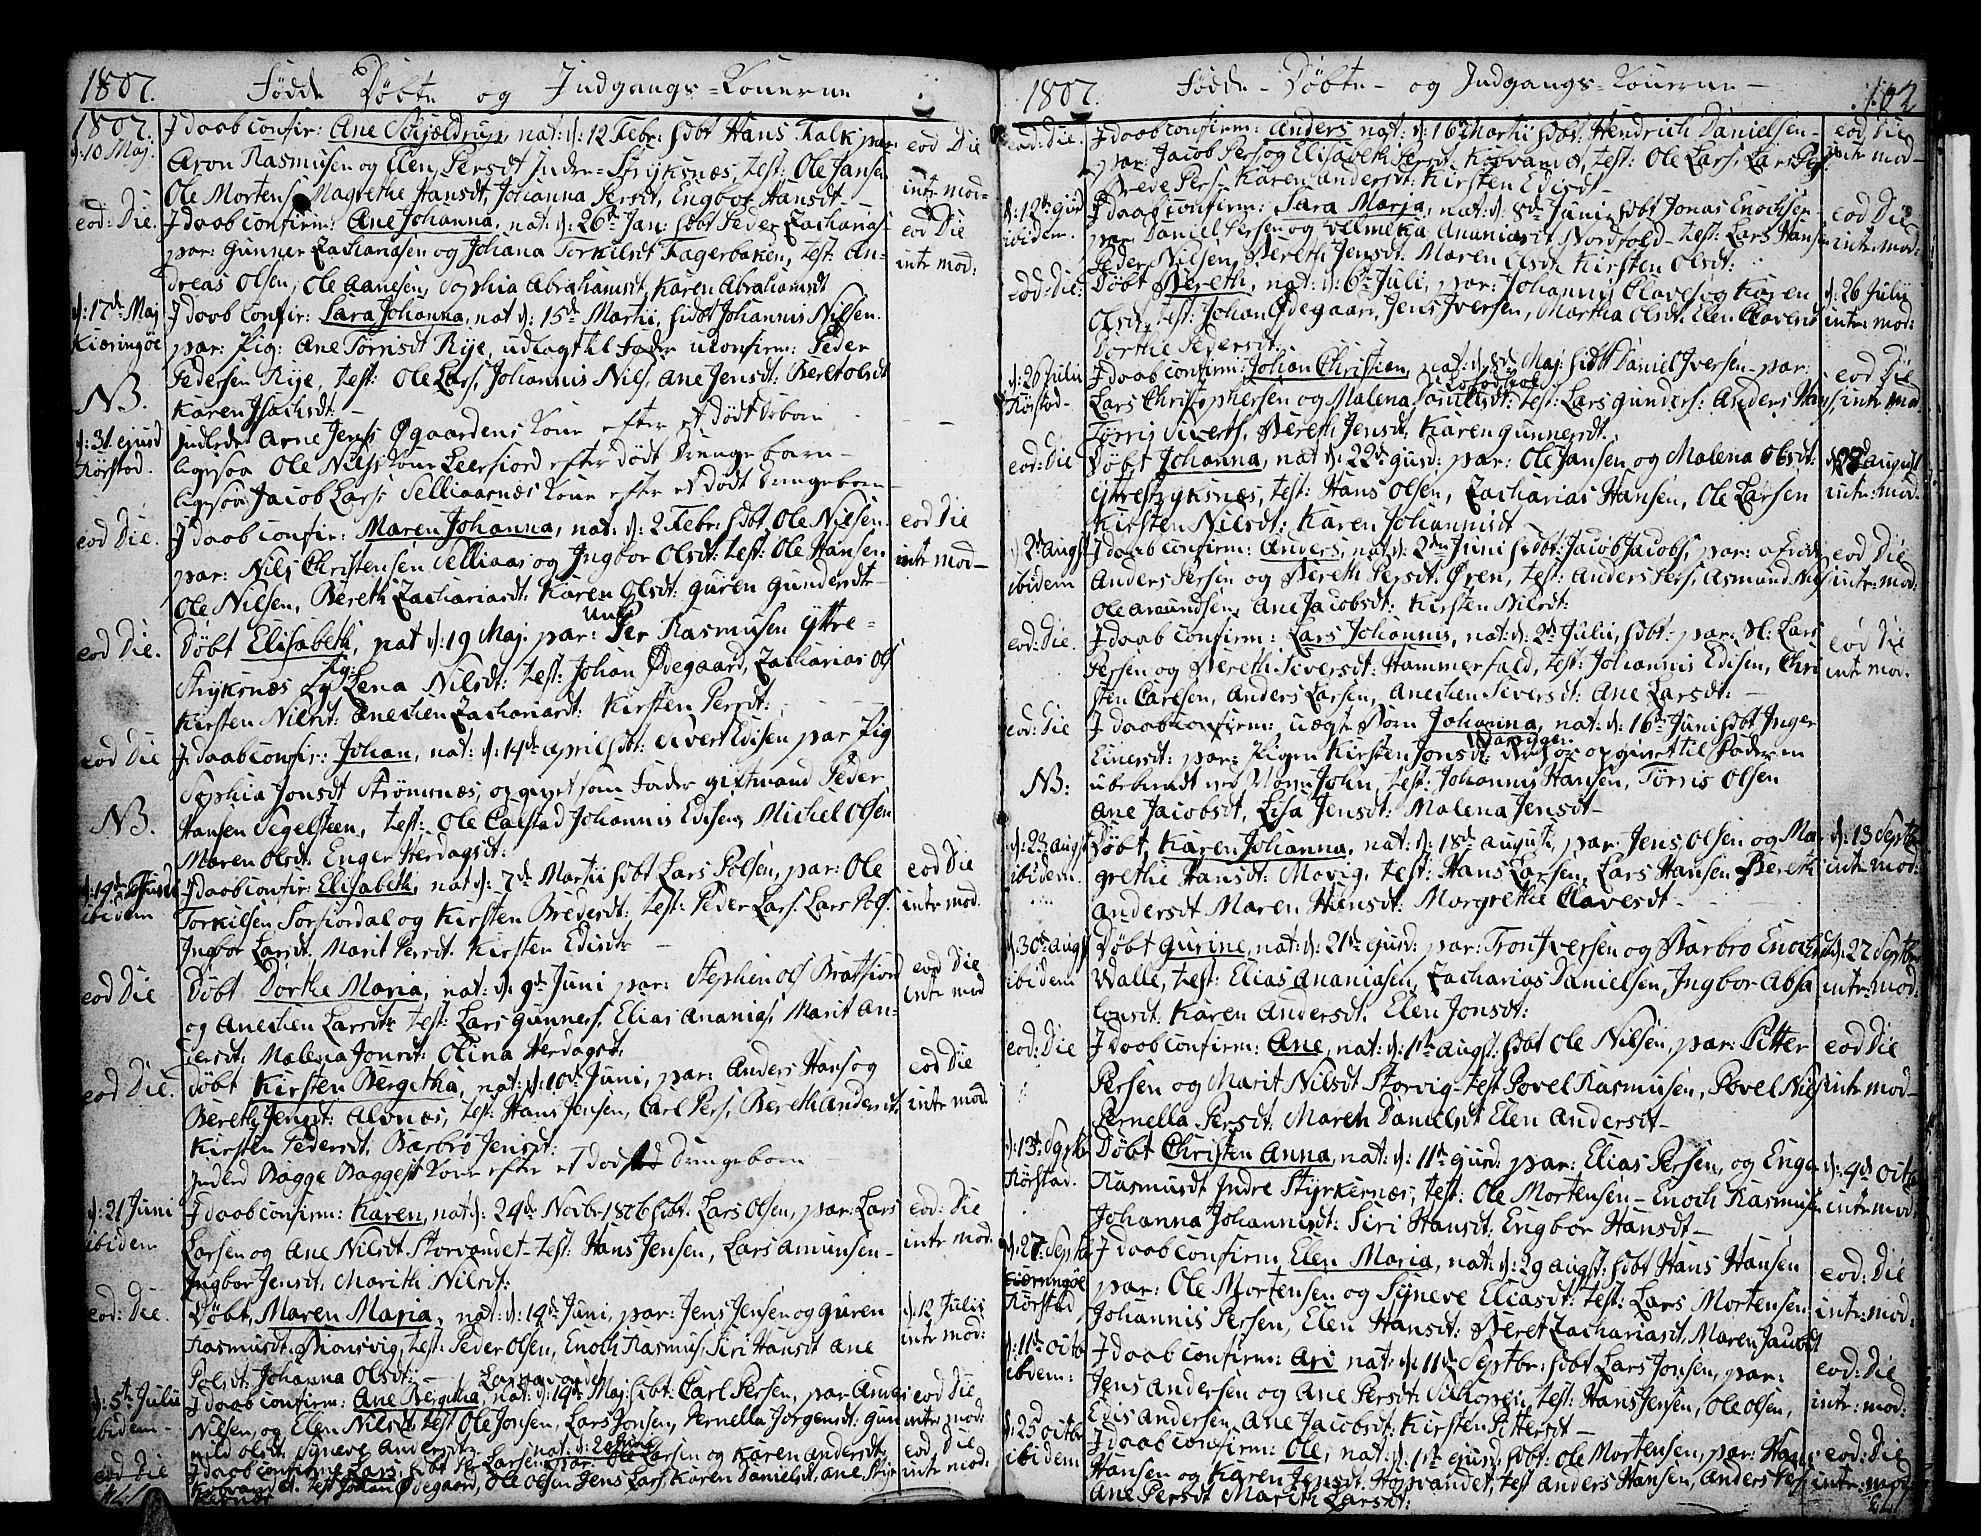 1807. Fødde Døbte og Indgangs-Konerne
1807. I daab confir: Ane Schjeldrup, nat: d: 12 Febr: hdbt Hans Falk par
d: 10 Maj. Aron Rasmusen og Elen Persdt Indre-Stryksnæs, test: Ole Jansen eod Die
Ole Mortens, Magrethe Hansdt, Johanna Persdt, Engbor Hansdt - intr mod-
eod: Die. I daab confir: Ane Johanna, nat: d: 26de Jan: hdbt Peder Zacharias eod Die
par: Gunner Zachariasen og Johana Torkilsdt Fagerbaken, test: An- intr mod:
dreas Olsen, Ole Aanesen, Sophia Abrahamsdt, Karen Abrahamsdt
d: 17de Maj I daab confir: Lara Johanna, nat d: 15de Martii, hdbt Johannis Nilsen.
Kiæringöe par: Pig: Ane Tørrisdt Rije, udlagt til Fader uconfirm: Peder
NB. Pedersen Rije, test: Ole Lars, Johannis Nils, Ane Jensdt: Beret Olsdt
Karen Isachsdt: -
d: 31 ejusd Indledet Arne Jenss Øgaardens Kone efter et dødt Børn -
Rørstad. ligesaa Ole Nilss Kone Leerfiord efter dødt Drengebarn -
ligesaa Jacob Lars: Selliaasnæs Kone efter et dødt Drengebarn
eod Die. I daab confir: Maren Johanna, nat: d: 2 Febr: hdbt, Ole Nilsen. eod Die
par: Nils Christensen Selliaas og Ingbor Olsdt: test: Ole Hansen intr mod-
Ole Nilsen, Bereth Zachariasdt: Karen Olsdt: Guren Gundersdt-
eod Die. Døbt Elisabeth, nat d: 19 Maj. par: Unk: Per Rasmusen Yttre-
Stryksnæs og Pig: Lena Nilsdt: test: Johan Ødegaard, Zacharias Ols
Kirsten Nilsdt: Anechen Zachariasdt: Kirsten Persdt:
eod Die I daab confir: Johan, nat: d: 14de April hdbt: Sivert Edisen par Pig
Sophia Jonsdt Strømsnæs, opgivet som Fader giftmand Peder
NB. Hansen Segelsteen, test: Ole Calstad Johannis Edisen, Michel Olsen
Maren Olsdt: Enger Herdagsdt:
d: 14de Juni I daab confir: Elisabeth, nat d: 7de Martii hdbt Lars Polsen, par: Ole eod Die
ibidem Torkilsen Sørfiordal og Kirsten Bredesdt: test: Peder Lars: Lars Pols. intr mod.
Ingbor Larsdt. Marit Persdt. Kirsten Edisdt: -
eod Die Døbt Dorthe Maria, nat: d: 9de Juni par: Stephen Ols Bratfiord eod Die
og Anechen Larsdt: test: Lars Gunners, Elias Ananias, Marit An- intr mod
dersdt: Malena Jonsdt: Olina Herdagsdt:
eod Die. døbt Kirsten Bergetha, nat: d: 10de Juni, par: Anders Hans og eod Die
Bereth Jensdt: Alvnæs, test: Hans Jensen, Carl Pers, Bereth Andersdt. intr mod.
Kirsten Pedersdt. Barbro Jensdt:
Indled Bagge Baggesst Kone efter et død Drengebarn -
d: 21 Juni I daab confirm: Karen, nat: d: 24de Novbr 1806 hdbt: Lars Olsen, par: Lars eod: Die
ibidem Larsen og Ane Nilsdt Storvandet - test: Hans Jensen, Lars Amunsen - intr mod.
Ingbor Jensdt: Marith Nilsdt:
eod: Die. Døbt, Maren Maria, nat: d: 14de Juni, par: Jens Jensen og Guren d: 12 Julii
Rasmusdt. Monsvig, test: Peder Olsen, Enoch Rasmus, Siri Hansdt Ane intr mod:
Polsdt: Johanna Olsdt: -
d: 5te Julii I daab confirm: Ane Bergitha, nat: d: 14de Maj: hdbt: Carl Persen, par Anders eod Die
ibidem - Nilsen, og Elen Nilsdt: test Ole Jonsen, Lars Jonsen, Pernella Jörgensdt: Gun intr: mod:
nild Olsdt. Syneve Andersdt: nat: d: 20 Juni
eod Die I daab confirm: Lars, hdbt Per Larsen par: Ole Larsen og Karen Andersdt eod, Die
Kobvandet. test Johan Ødegaard, Ole Olsen Jens Lars, Karen Danielsdt, Ane intr mod:
1807. Fødde - Døbte - og Indgangs-Konerne - 102
eod: Die. I daab confirm: Anders nat: d: 16de Martii hdbt. Hendrich Danielsen - eod Die
par: Jacob Pers og Elisabeth Persdt. Kobvandet, test: Ole Lars: Lars intr mod-
Brede Pers: Karen Andersdt: Kirsten Edisdt -
d: 12te ejusd I daab confirm: Sara Marja, nat: d: 8de Juni, hdbt Jonas Enochsen eod Die
ibidem. par: Daniel Persen og Vilmetja Ananiasdt Nordfold - test: Lars Hansen intr: mod:
Peder Nilsen, Bereth Jensdt. Maren Olsdt. Kirsten Olsdt:
eod: Die: Døbt Bereth, nat: d: 6te Juli, par: Johannis Claves og Karen d: 26 Julii
Olsdt. test: Johan Ødegaard, Jens Iversen, Martha Olsdt. Elen Clavens intr: mod:
Dorthe Pedersdt.
d: 26 Julii I daab confirm: Johan Christian, nat: d: 8de Maj: hdbt Daniel Iversen - par: eod Die
Rørstad - Lars Christophersen og Malena test: Lars Gunders: Anders Hans, intr mod
Tørris Siverts, Bereth Jensdt: Karen Gunnersdt.
eod: Die Døbt Johanna, nat d: 22de ejusd: par: Ole Jansen og Malena Olsdt: d: 23 August
Yttrestryksnæs, test: Hans Olsen, Zacharias Hansen, Ole Larsen intr: mod.
Kirsten Nilsdt: Karen Johannisdt
d: 2de Augst I daab confirm: Anders, nat d: 2den Juni hdbt: Jacob Jacobs, par: eod Die
ibidem Anders Persen og Bereth Persdt: Ören, test: Anders Pers, Asmund Nils intr: mod:
Ole Amundsen, Ane Jacobsdt: Kirsten Nilsdt:
eod: Die. I daab confirm: Lars Johannis, nat: d: 2de Julii, hdbt: par: Sl: Lars eod Die
Persen og Bereth Siversdt: Hammerfald, test: Johannis Edisen, Chri intr mod.
sten Carlsen, Anders Larsen, Anechen Siversdt: Ane Larsdt: -
eod: Die I daab confirm: uægte Børn Johanna, nat: d: 16de Juni hdbt Inger
Einersdt: par: Pigen Kirsten Jonsdt: opgivet til Faderen
NB: ubekiendt ved Navn John, test: Johannis Hansen, Tørris Olsen
Ane Jacobsdt, Lisa Jensdt: Malena Jensdt -
d: 23 Augst Døbt, Karen Johanna, nat: d: 18de August, par: Jens Olsen og Mar d: 13 Septbr
ibidem. grethe Hansdt: Movig, test: Hans Larsen, Lars Hansen Bereth intr: mod:
Andersdt Maren Hansdt: Margrethe Clavesdt -
d: 30de Augst Døbt Gurine, nat: d: 21de ejusd: par: Tron Iversen og Barbro Enochs d: 27 Septbr
ibidem Valle, test: Elias Ananiasen, Zacharias Danielsen, Ingbor Absa intr: mod:
lonsdt: Karen Andersdt. Elen Jonsdt:
eod: Die I daab confirm: Ane, nat: d: 1ste Augst: hdbt Ole Nilsen, par: Pitter eod Die
Persen og Marit Nilsdt Storvig - test Povel Rasmusen, Povel Nils intr mod-
Pernella Persdt. Maren Danielsdt Elen Andersdt -
d: 13 Septbr Døbt Christen Anna, nat: d: 11te ejusd: par: Elias Persen, og Enger d: 4de Octo
Rørstad. Rasmusdt Indre Styrkernæs, test: Ole Mortensen - Enoch Rasmusen intr: mod:
Johanna Johannisdt: Siri Hansdt: Engbor Hansdt -
d: 27: Septbr I daab confirm Elen Maria, nat: d: 29 Augst: hdbt Hans Hansen eod: Die
Kiæringöe par: Ole Mortensen og Syneve Eliasdt: test: Lars Mortensen intr: mod:
Rørstad Johannis Persen, Elen Hansdt: Beret Zachariasdt, Maren Jacobsdt
d: 11te Octo I daab confirm: Ari nat: d: 11de Septbr: hdbt Lars Jonsen, par: eod: Die
ibdem: Jens Andersen og Ane Persdt: test: Hans Jensen, Ole Olsen, intr: mod:
Edis Andersen, Ane Jacobsdt: Kirsten Pittersdt -
d: 25 Octbr I daab confirm: Ole, nat: d: 1ste ejusd: hdbt: Ole Mortensen, par: Hans eod: Die
ibidem Hansen og Karen Jensdt. Hopvandet, test Anders Hansen, Anders Pers intr: mod:
Ane Persdt Marith Larsdt: